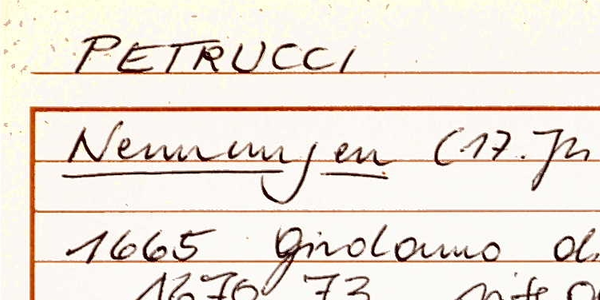 PETRUCCI
Nennungen (17. Jh
1665 Girolamo d.
1670 73